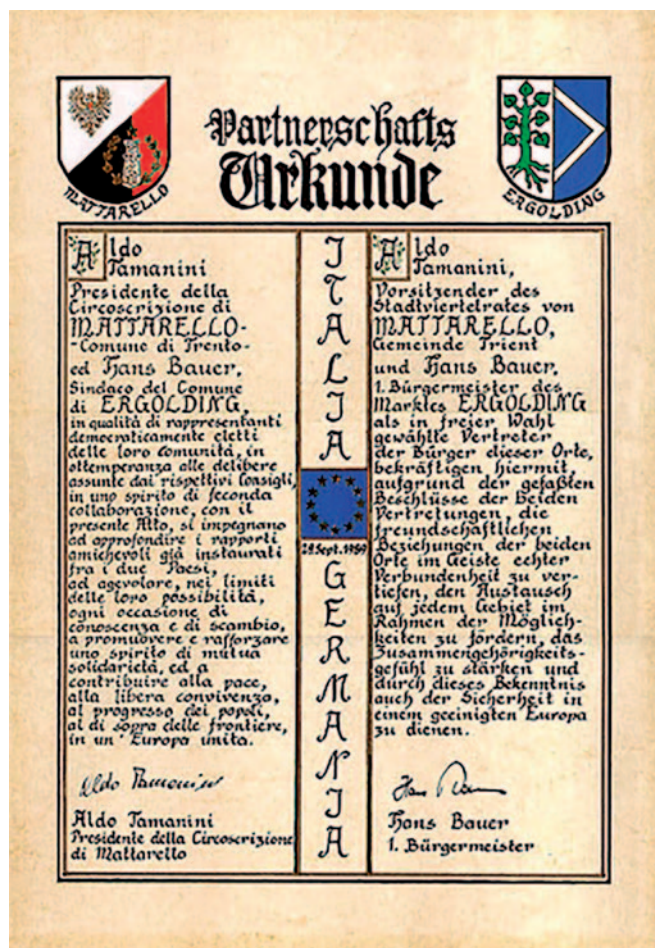 Partnerschafts
Urkunde
MATTARELLO
ERGOLDING
Aldo
Tamanini
Presidente della
Circoscrizione di
MATTARELLO-
-Comune di Trento-
ed Hans Bauer,
Sindaco del Comune
di ERGOLDING,
in qualità di rappresentanti
democraticamente eletti
delle loro comunità, in
ottemperanza alle delibere
assunte dai rispettivi Consigli,
in uno spirito di feconda
collaborazione, con il
presente Atto, si impegnano
ad approfondire i rapporti
amichevoli già instaurati
fra i due Paesi,
ad agevolare, nei limiti
delle loro possibilità,
ogni occasione di
conoscenza e di scambio,
a promuovere e rafforzare
uno spirito di mutua
solidarietà, ed a
contribuire alla pace,
alla libera convivenza,
al progresso dei popoli,
al di sopra delle frontiere,
in un' Europa unita.
Aldo Tamanini
Aldo Tamanini
Presidente della Circoscrizione
di Mattarello
ITALIA
28 Sept. 1989
GERMANIA
Aldo
Tamanini,
Vorsitzender des
Stadtviertelrates von
MATTARELLO,
Gemeinde Trient
und Hans Bauer,
1. Bürgermeister des
Marktes ERGOLDING
als in freier Wahl
gewählte Vertreter
der Bürger dieser Orte,
bekräftigen hiermit,
aufgrund der gefaßten
Beschlüsse der beiden
Vertretungen, die
freundschaftlichen
Beziehungen der beiden
Orte im Geiste echter
Verbundenheit zu ver-
tiefen, den Austausch
auf jedem Gebiet im
Rahmen der Möglich-
keiten zu fördern, das
Zusammengehörigkeits-
gefühl zu stärken und
durch dieses Bekenntnis
auch der Sicherheit in
einem geeinigten Europa
zu dienen.
Hans Bauer
1. Bürgermeister